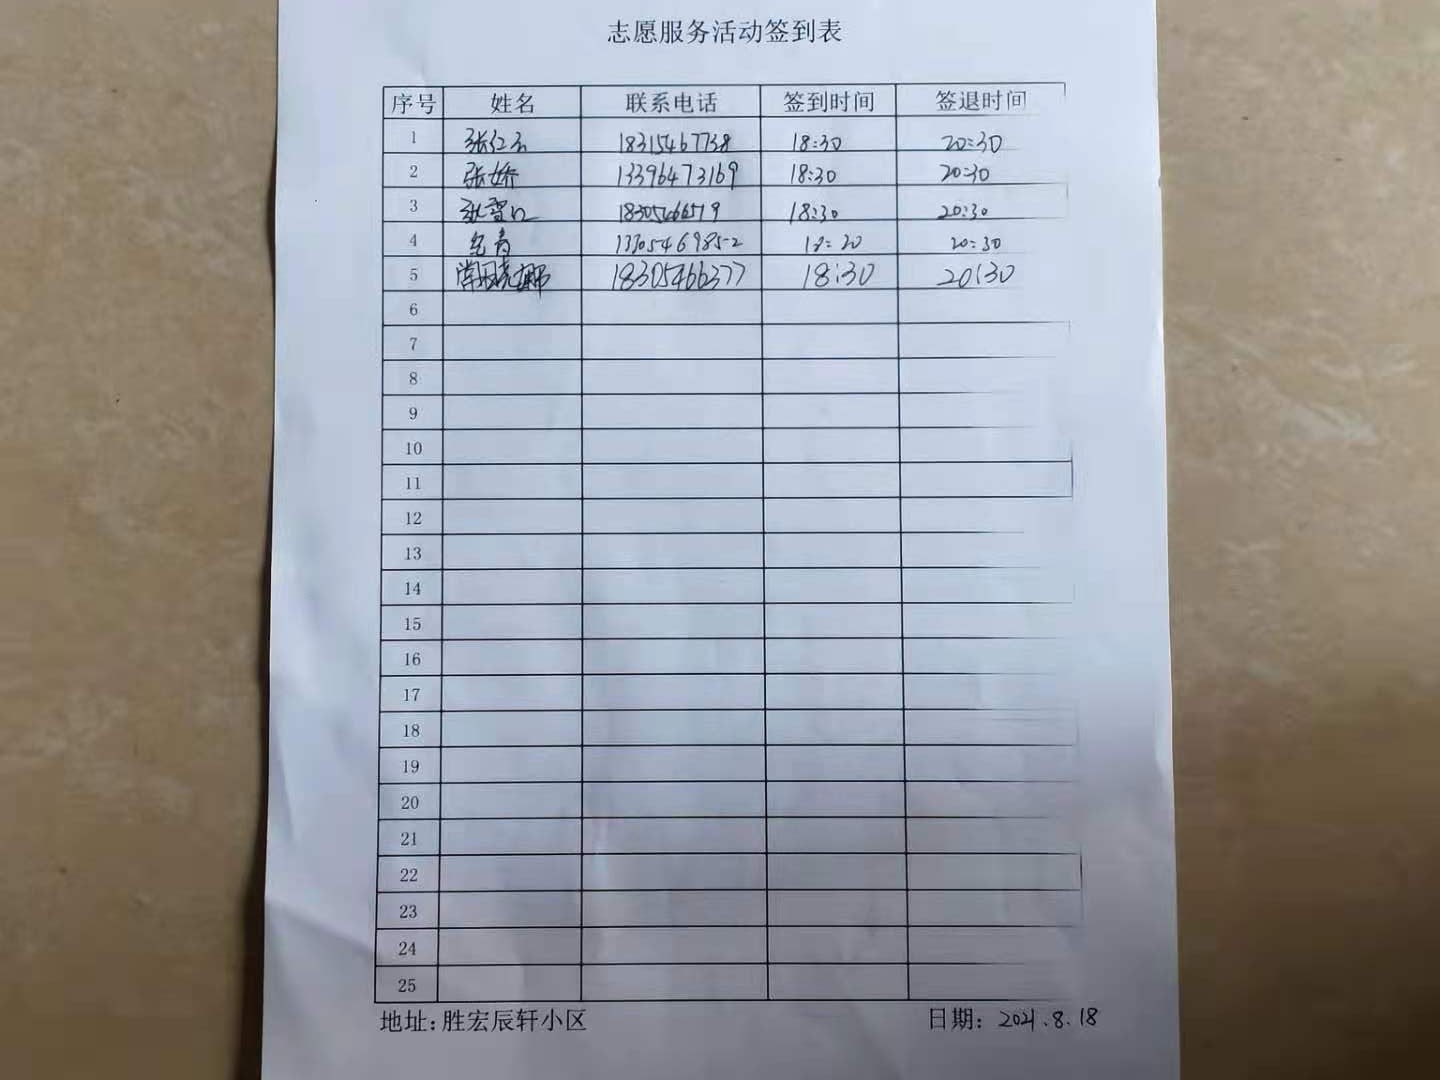 志愿服务活动签到表
序号 姓名 联系电话 签到时间 签退时间
1 18315467738 18:30 20:30
2 张娇 13396473169 18:30 20:30
3 18:30 20:30
4 20:30
5 18305466377 18:30 20:30
6
7
8
9
10
11
12
13
14
15
16
17
18
19
20
21
22
23
24
25
地址:胜宏辰轩小区 日期: 2021.8.18